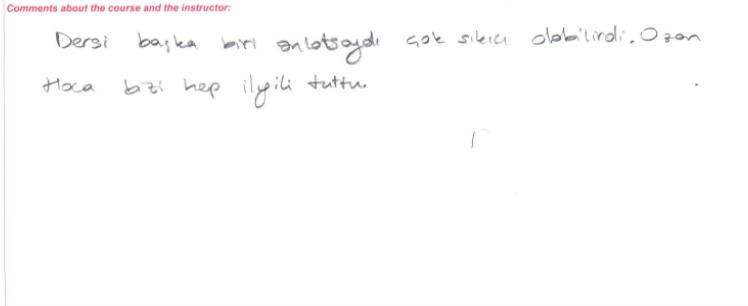 Comments about the course and the instructor:
Dersi başka biri anlatsaydı çok sıkıcı olabilirdi. Ozan
Hoca bizi hep ilgili tuttu.